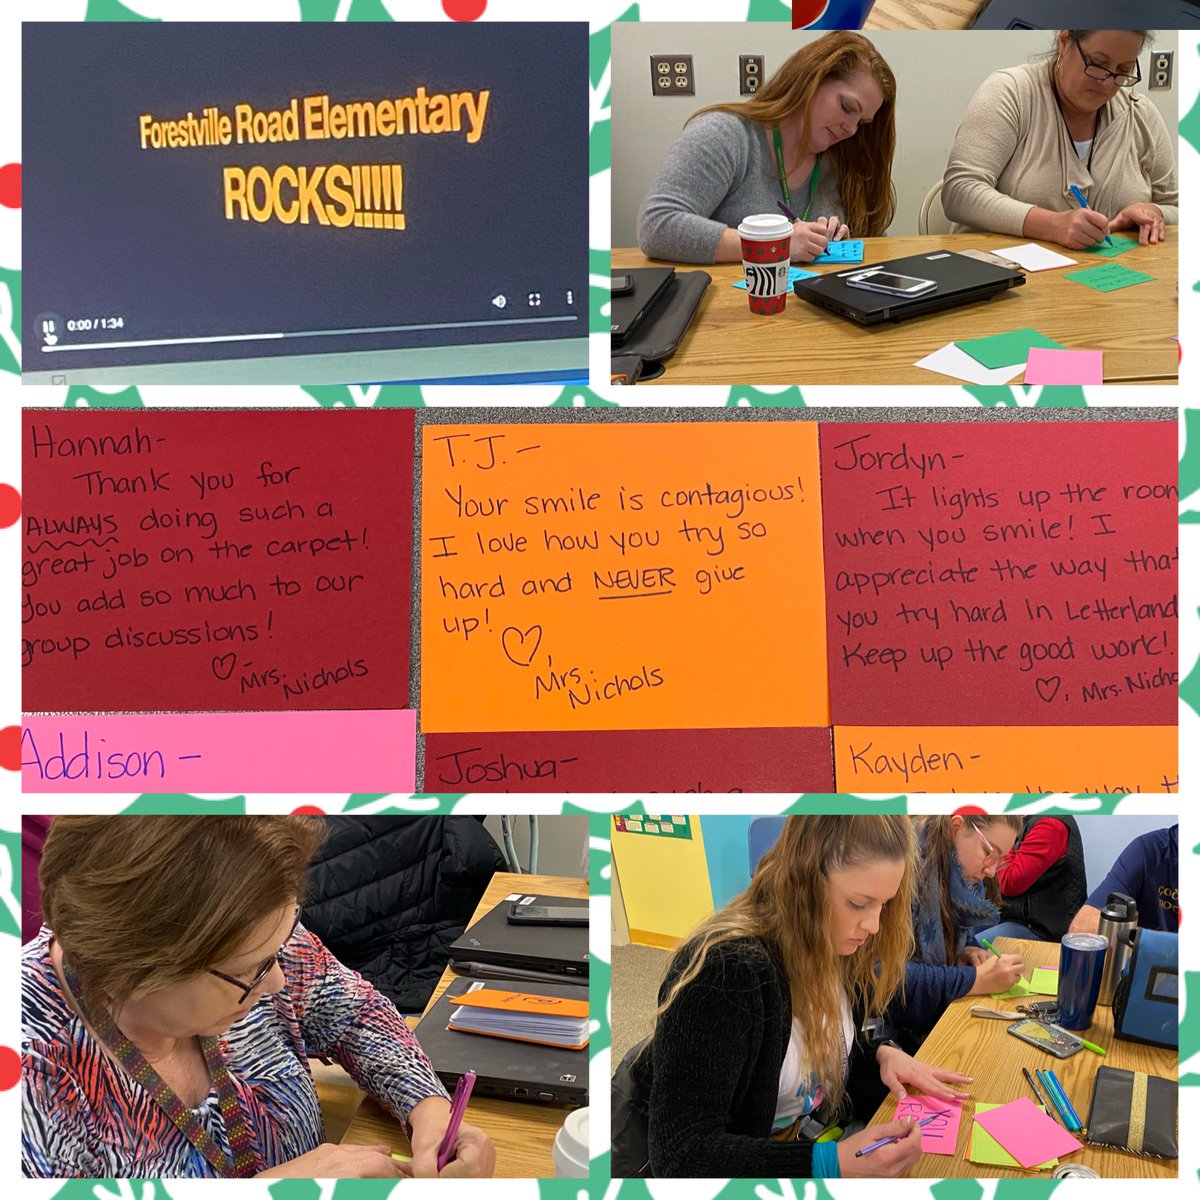 Forestville Road Elementary
ROCKS!!!!!
0:00 / 1:34
Hannah-
Thank you for
ALWAYS doing such a
great job on the carpet!
You add so much to our
group discussions!
♡- Mrs. Nichols
T.J. -
Your smile is contagious!
I love how you try so
hard and NEVER give
up!
♡, Mrs. Nichols
Jordyn-
It lights up the room
when you smile! I
appreciate the way that
you try hard in Letterland
Keep up the good work!
♡, Mrs. Nicho
Addison -
Joshua-
Kayden-
YOU